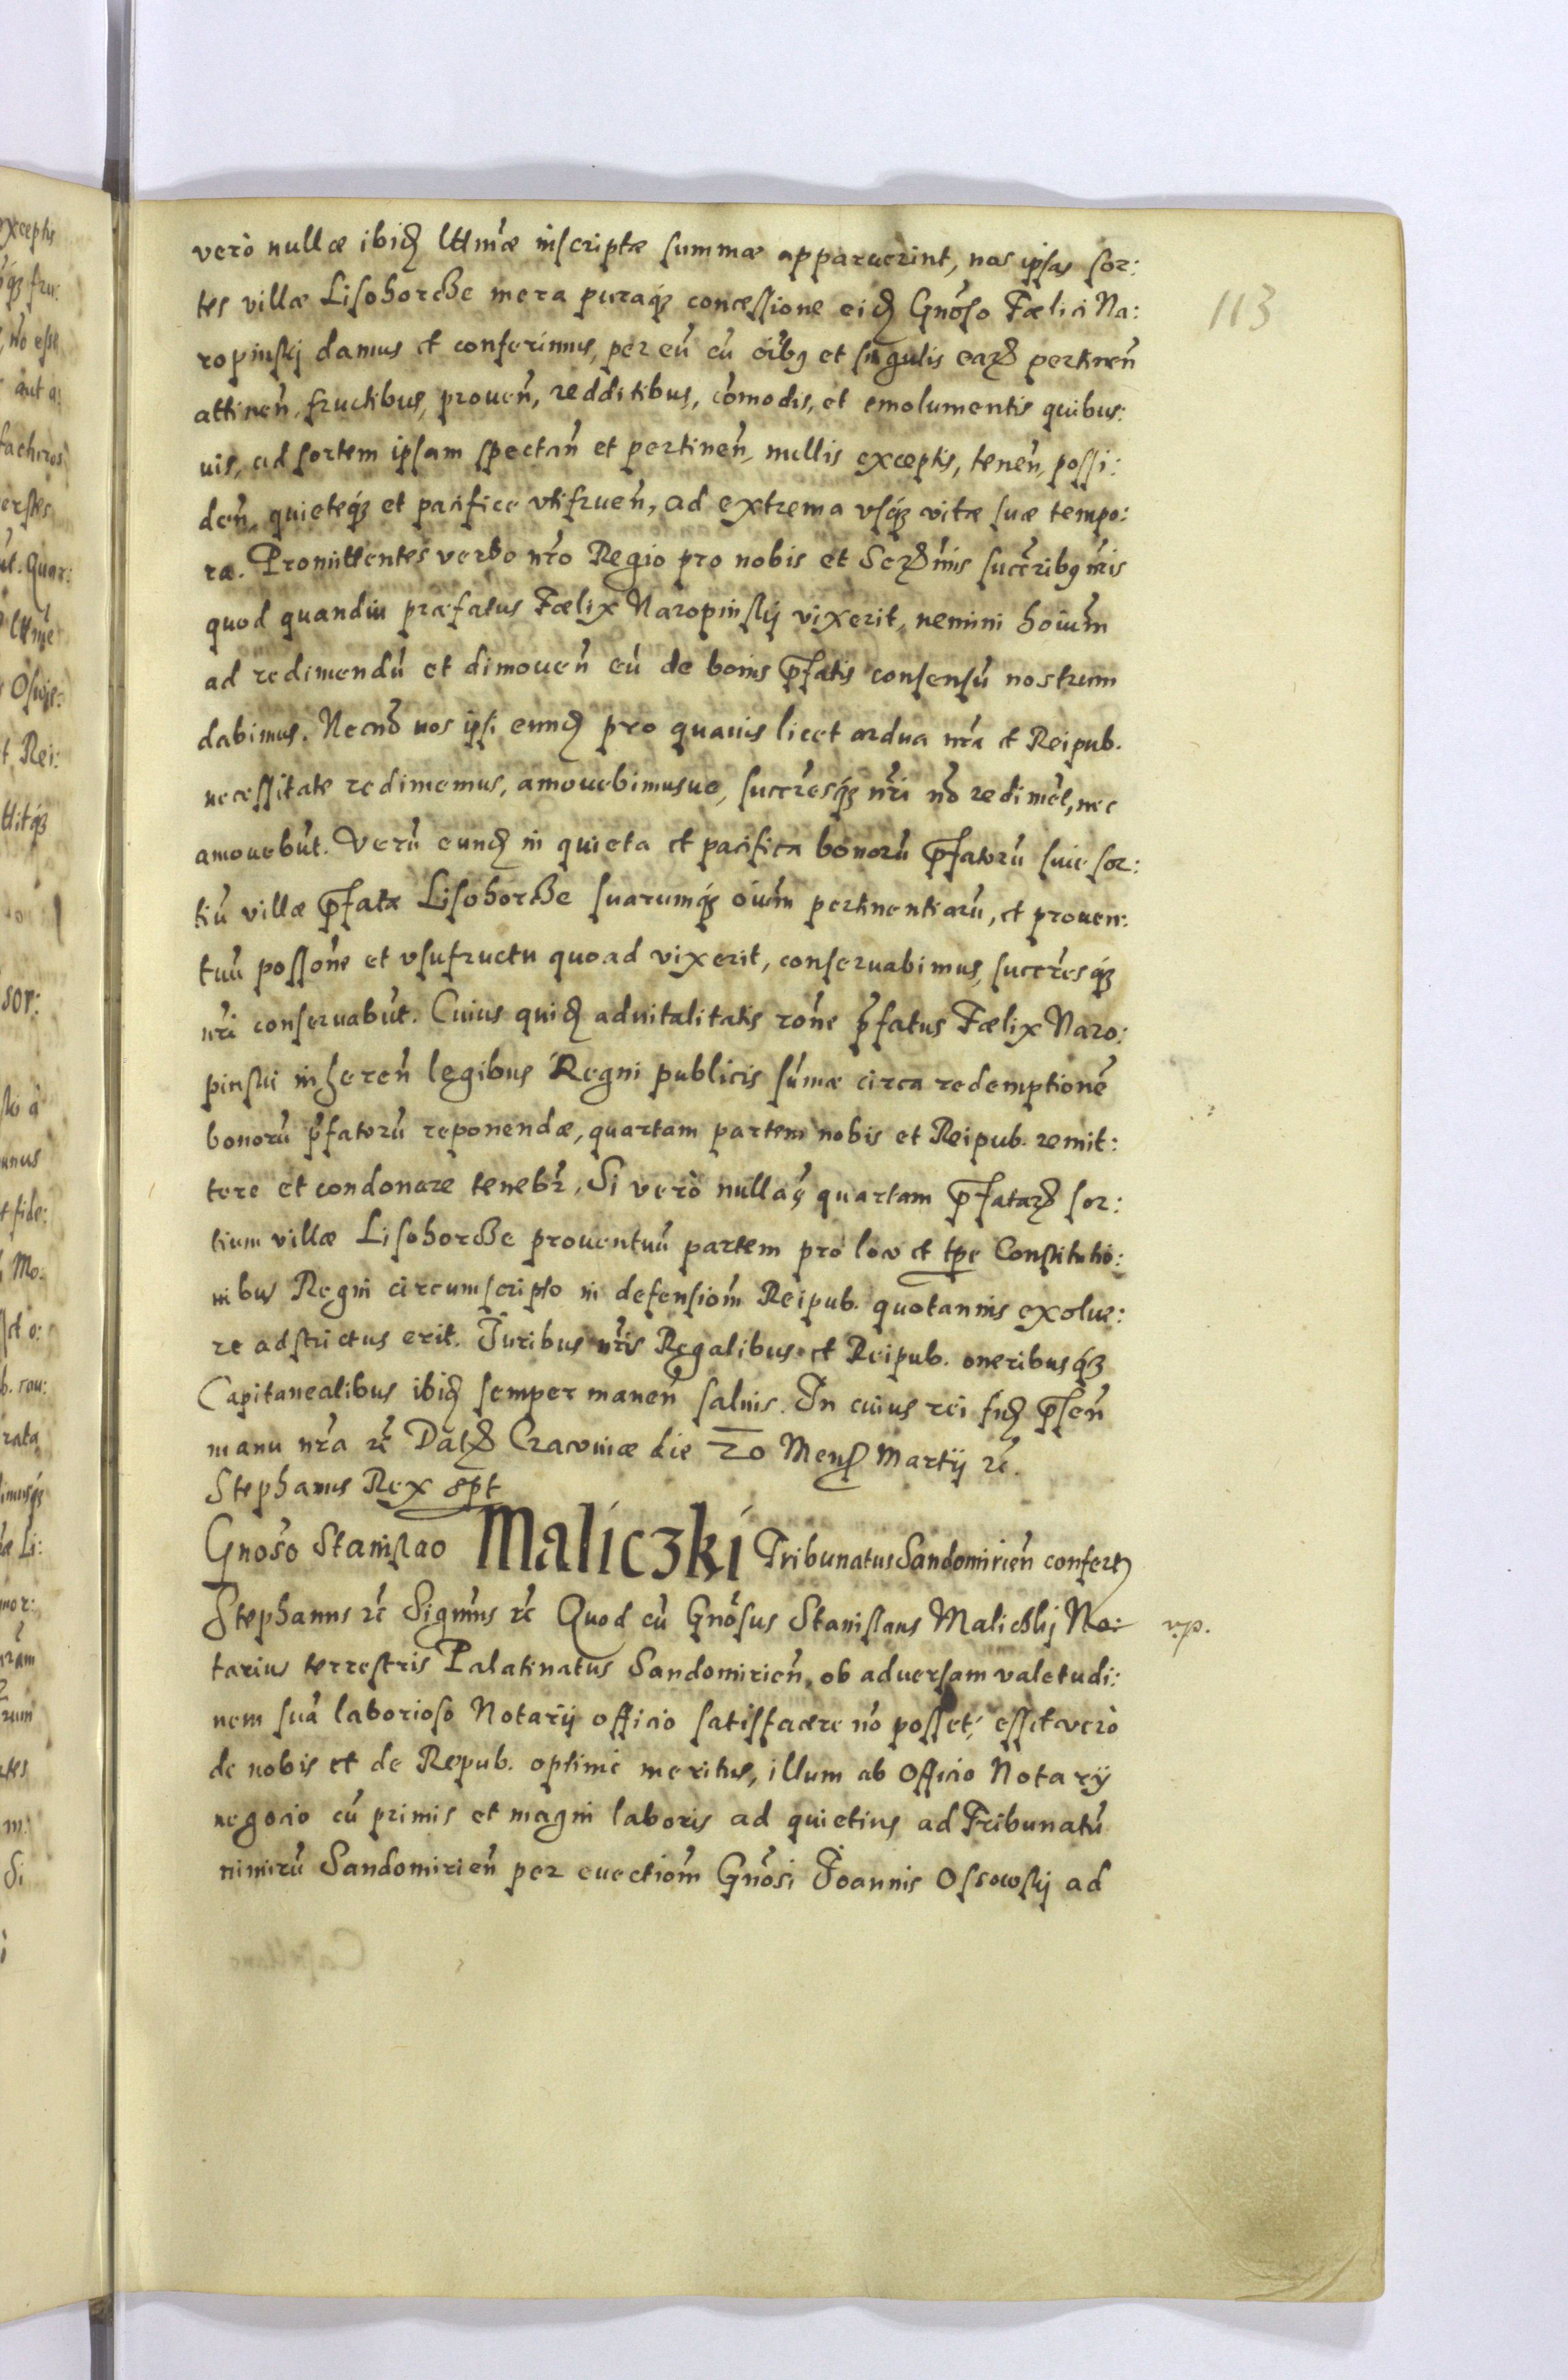 113
verò nullæ ibid lttrmæ inscriptæ summæ apparuerint, nos ipsas sor:
tes villæ Lisohorcze mera puraq concessione eid Gnõso Fælici Na:
ropinskij damus et conferimus, per eũ cũ õibq et singulis earũ pertineñ
attineñ, fructibus, proueñ, redditibus, cõmodis, et emolumentis quibus:
uis, ad sortem ipsam spectañ et pertineñ, nullis exceptis, teneñ, possi:
deñ, quieteq et pacifice vtifrueñ, ad extrema vsq vitæ suæ tempo:
ra. Promittentes verbo nrõ Regio pro nobis et Serm̃is succr̃ibq nr̃is
quod quandiu præfatus Fælix Naropinskij vixerit, nemini hoium̃
ad redimendũ et dimoueñ eũ de bonis p̃fatis consensũ nostrum
dabimus. Necnõ nos ipsi eund pro quauis licet ardua nr̃a et Reipub.
necessitate redimemus, amouebimusue, succr̃esq nr̃i nõ redimẽt, nec
amouebũt. Verũ eund in quieta et pacifica bonorũ p̃fatorũ siue sor:
tiũ villæ p̃fatæ Lisohorcze suarumq oium̃ pertinentiarũ, et prouen:
tuũ possõne et vsufructu quoad vixerit, conseruabimus, succr̃esq
nr̃i conseruabũt. Cuius quid aduitalitatis rõne p̃fatus Fælix Naro:
pinskii inhæreñ legibus Regni publicis sũmæ circa redemptionẽ
bonorũ p̃fatorũ reponendæ, quartam partem nobis et Reipub. remit:
tere et condonare tenebr̃. Si verò nulla ẽ quartam p̃fatar sor:
tium villæ Lisohorcze prouentuũ partem pro loco et tp̃e Constitutio:
nibus Regni circumscripto in defensiom̃ Reipub. quotannis exolue:
re adstrictus erit. Iuribus nr̃is Regalibus et Reipub. oneribusq
Capitanealibus ibid semper maneñ saluis. In cuius rei fid p̃señ
manu nr̃a rc̃ Dat Cracouiæ die 20 Mens Martij rc̃.
Stephanus Rex spt
Gnõso Stanislao Maliczki Tribunatus Sandomirieñ confert
Stephanus rc̃ Significamus rc̃ Quod cũ Gnõsus Stanislaus Maliczkij No:
v.p.
tarius terrestris Palatinatus Sandomirieñ, ob aduersam valetudi:
nem suã laborioso Notarij officio satisfacere nõ posset, esset verò
de nobis et de Repub. optimè meritus, illum ab Officio Notarij
negocio cũ primis et magni laboris ad quietius ad Tribunatũ
nimirũ Sandomirieñ per euectiom̃ Gnõsi Ioannis Ossowskij ad